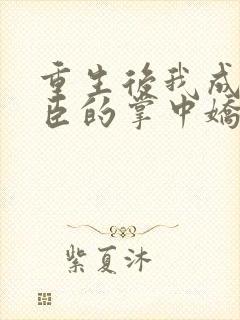 重生後我成
臣的掌中嬌
紫夏沐